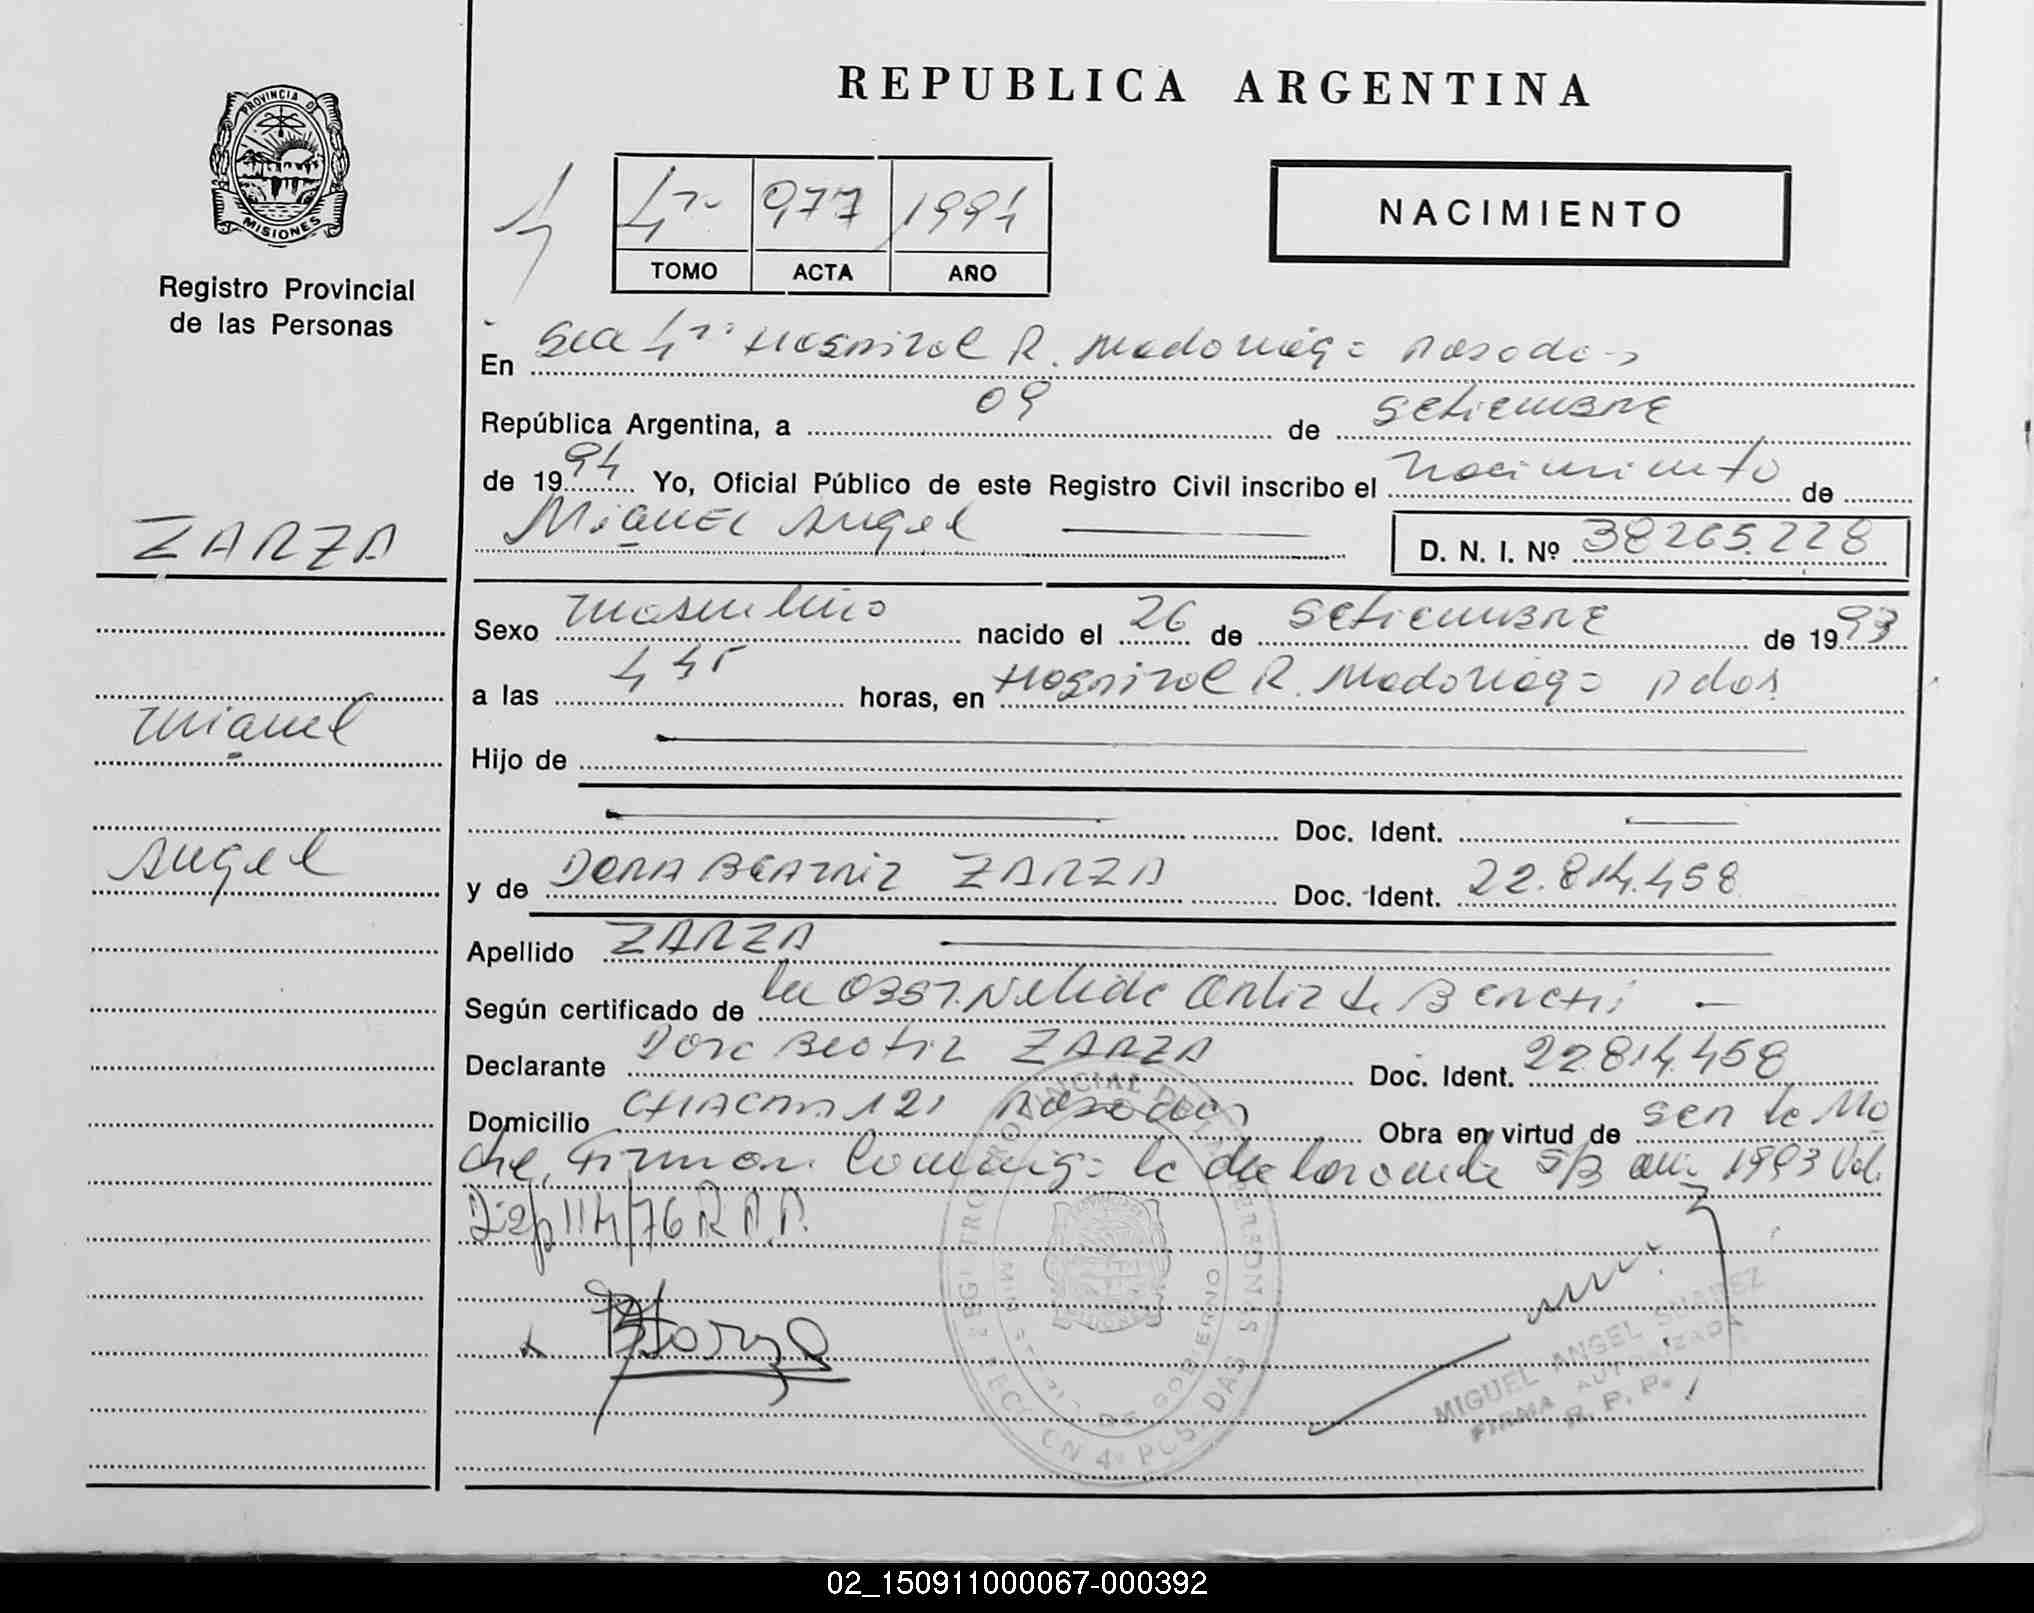 REPUBLICA ARGENTINA
PROVINCIA DE
MISIONES
Registro Provincial
de las Personas
4ª 977 1994
TOMO ACTA AÑO
NACIMIENTO
En Scc 4ª Hospital R. Madariaga Posadas
República Argentina, a 09 de Setiembre
de 1994 Yo, Oficial Público de este Registro Civil inscribo el Nacimiento de
Miguel Angel D. N. I. Nº 38265.228
ZARZA
Miguel
Angel
Sexo masculino nacido el 26 de Setiembre de 1993
a las 4 45 horas, en Hospital R. Madariaga Pdas
Hijo de
Doc. Ident.
y de DORA BEATRIZ ZARZA Doc. Ident. 22.814.458
Apellido ZARZA
Según certificado de la Obst. Nelida Ortiz de Benchi
Declarante Dora Beatriz ZARZA Doc. Ident. 22.814.458
Domicilio CHACRA 121 Posadas Obra en virtud de ser la Ma
dre, Firman conmigo la declarante S/B año 1993 Vol.
Disp 114/76 R.P.P.
REGISTRO PROVINCIAL DE LAS PERSONAS
MINISTERIO DE GOBIERNO
SECCION 4ª POSADAS
MIGUEL ANGEL SUAREZ
FIRMA AUTORIZADA
R. P. P.
02_150911000067-000392